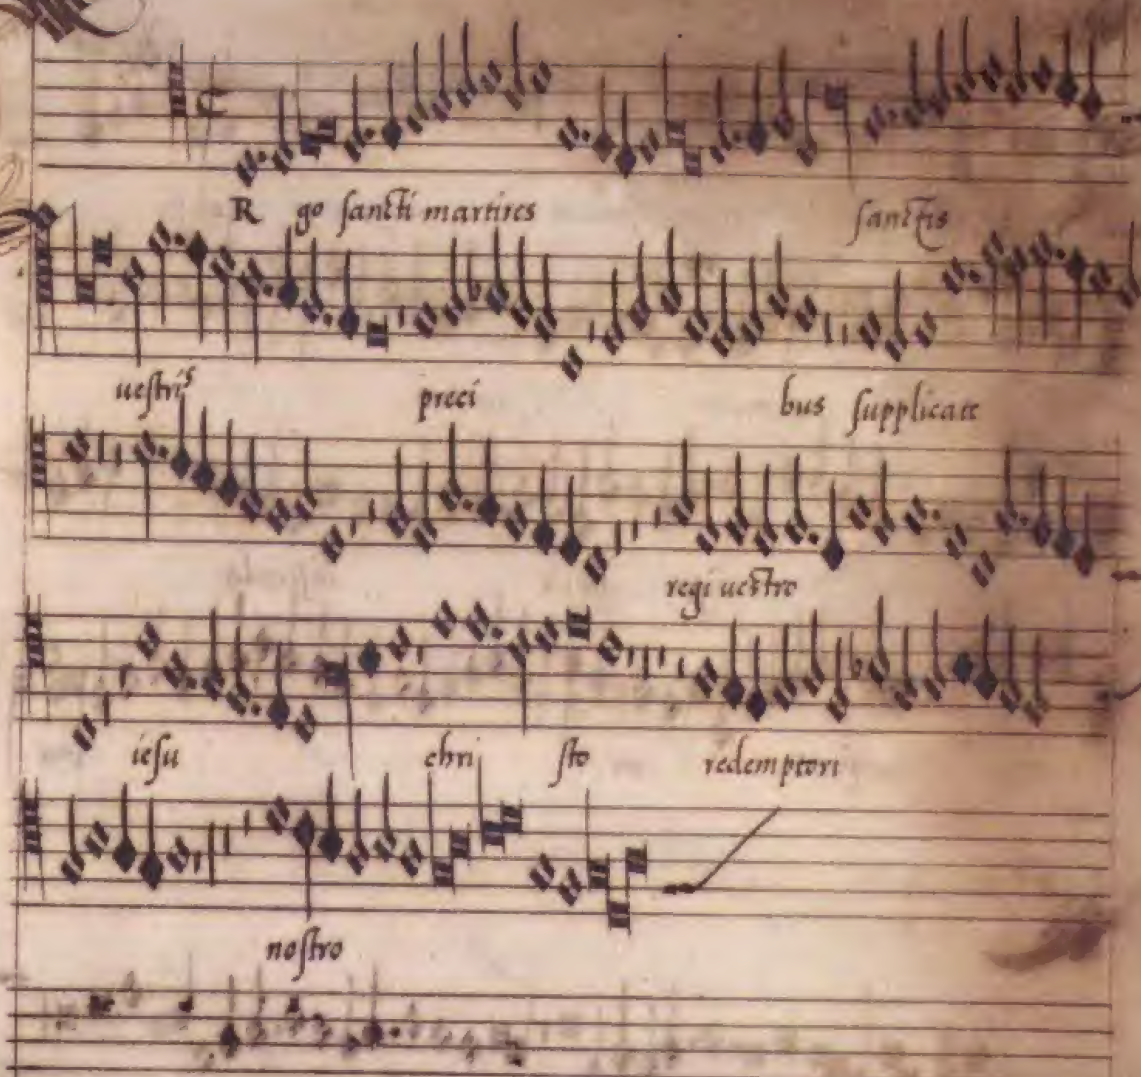 R go sancti martires sanctis
uestris preci bus supplicate
regi uestro
iesu chri sto redemptori
nostro